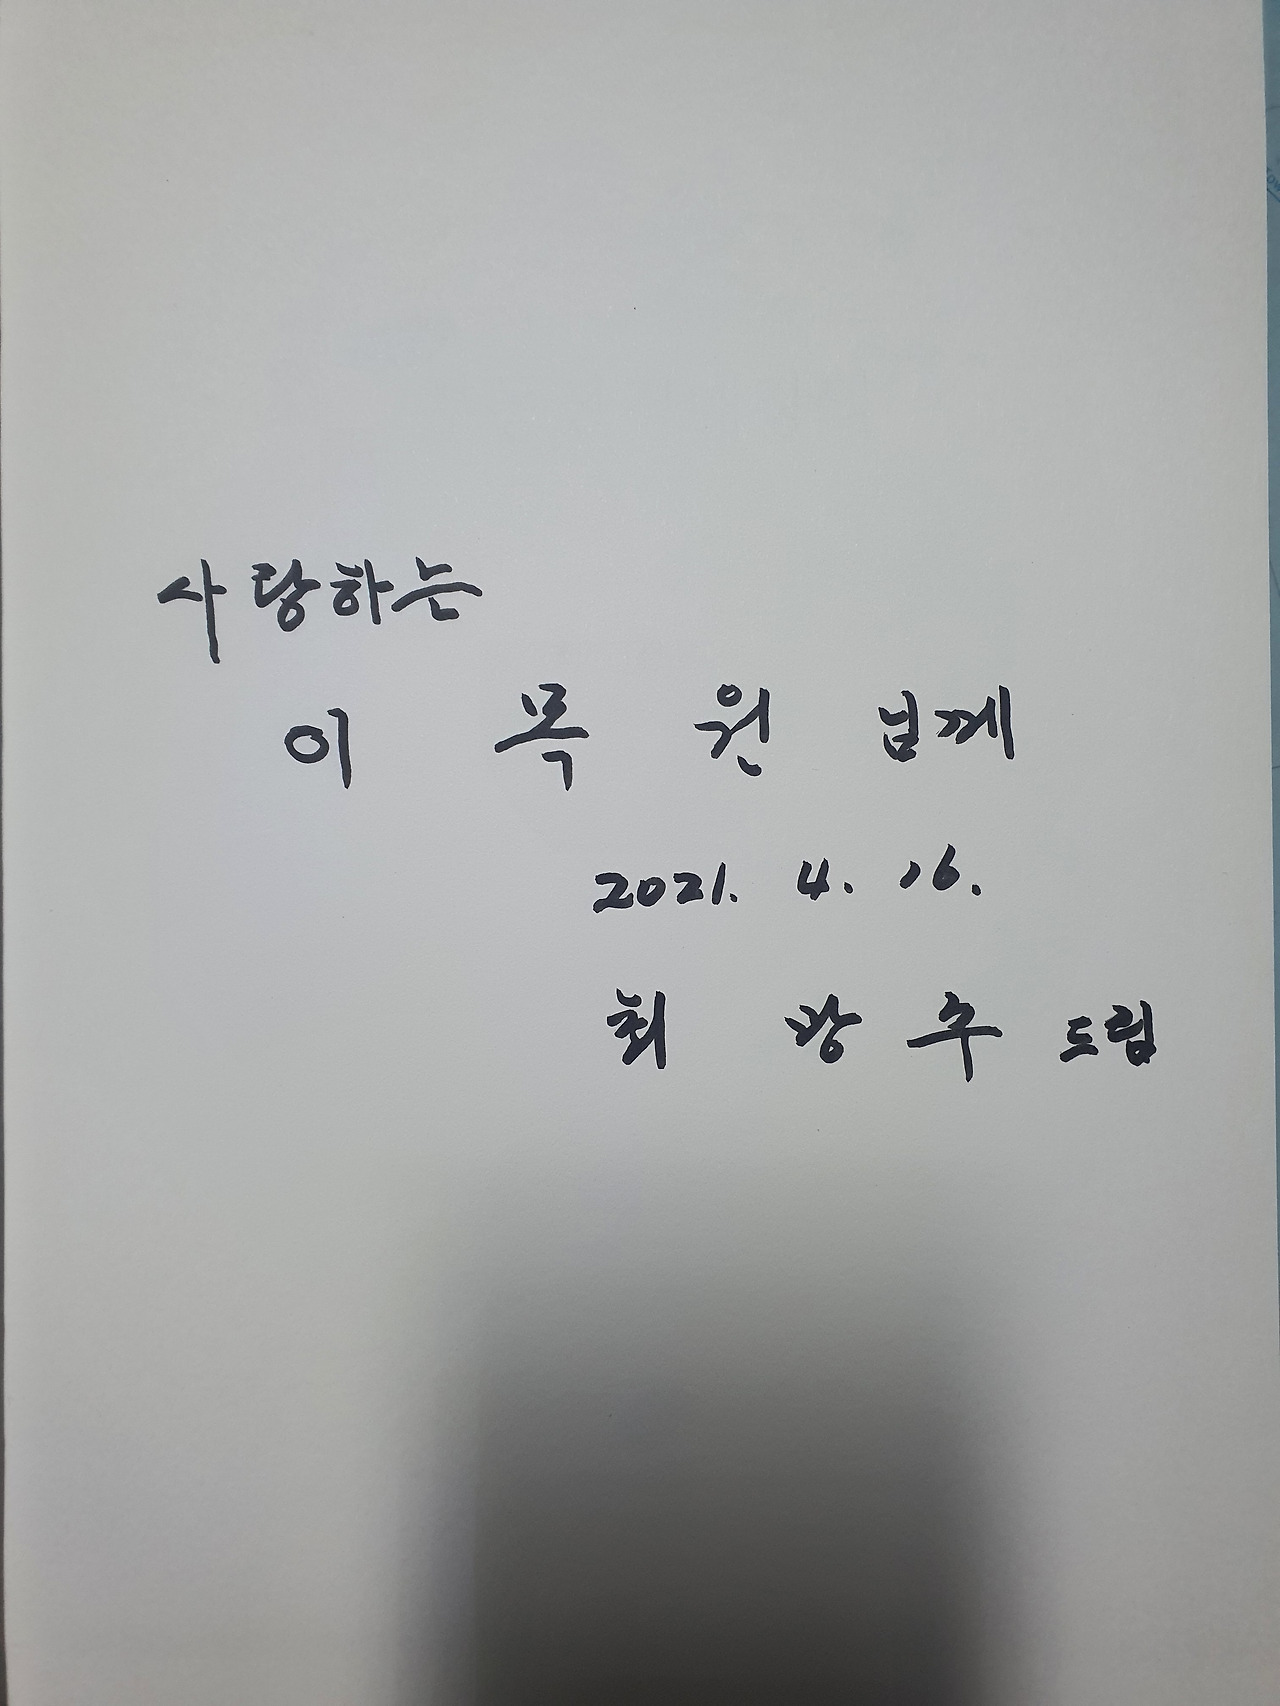 사랑하는
이 목 원 님께
2021. 4. 16.
최 광 수 드림